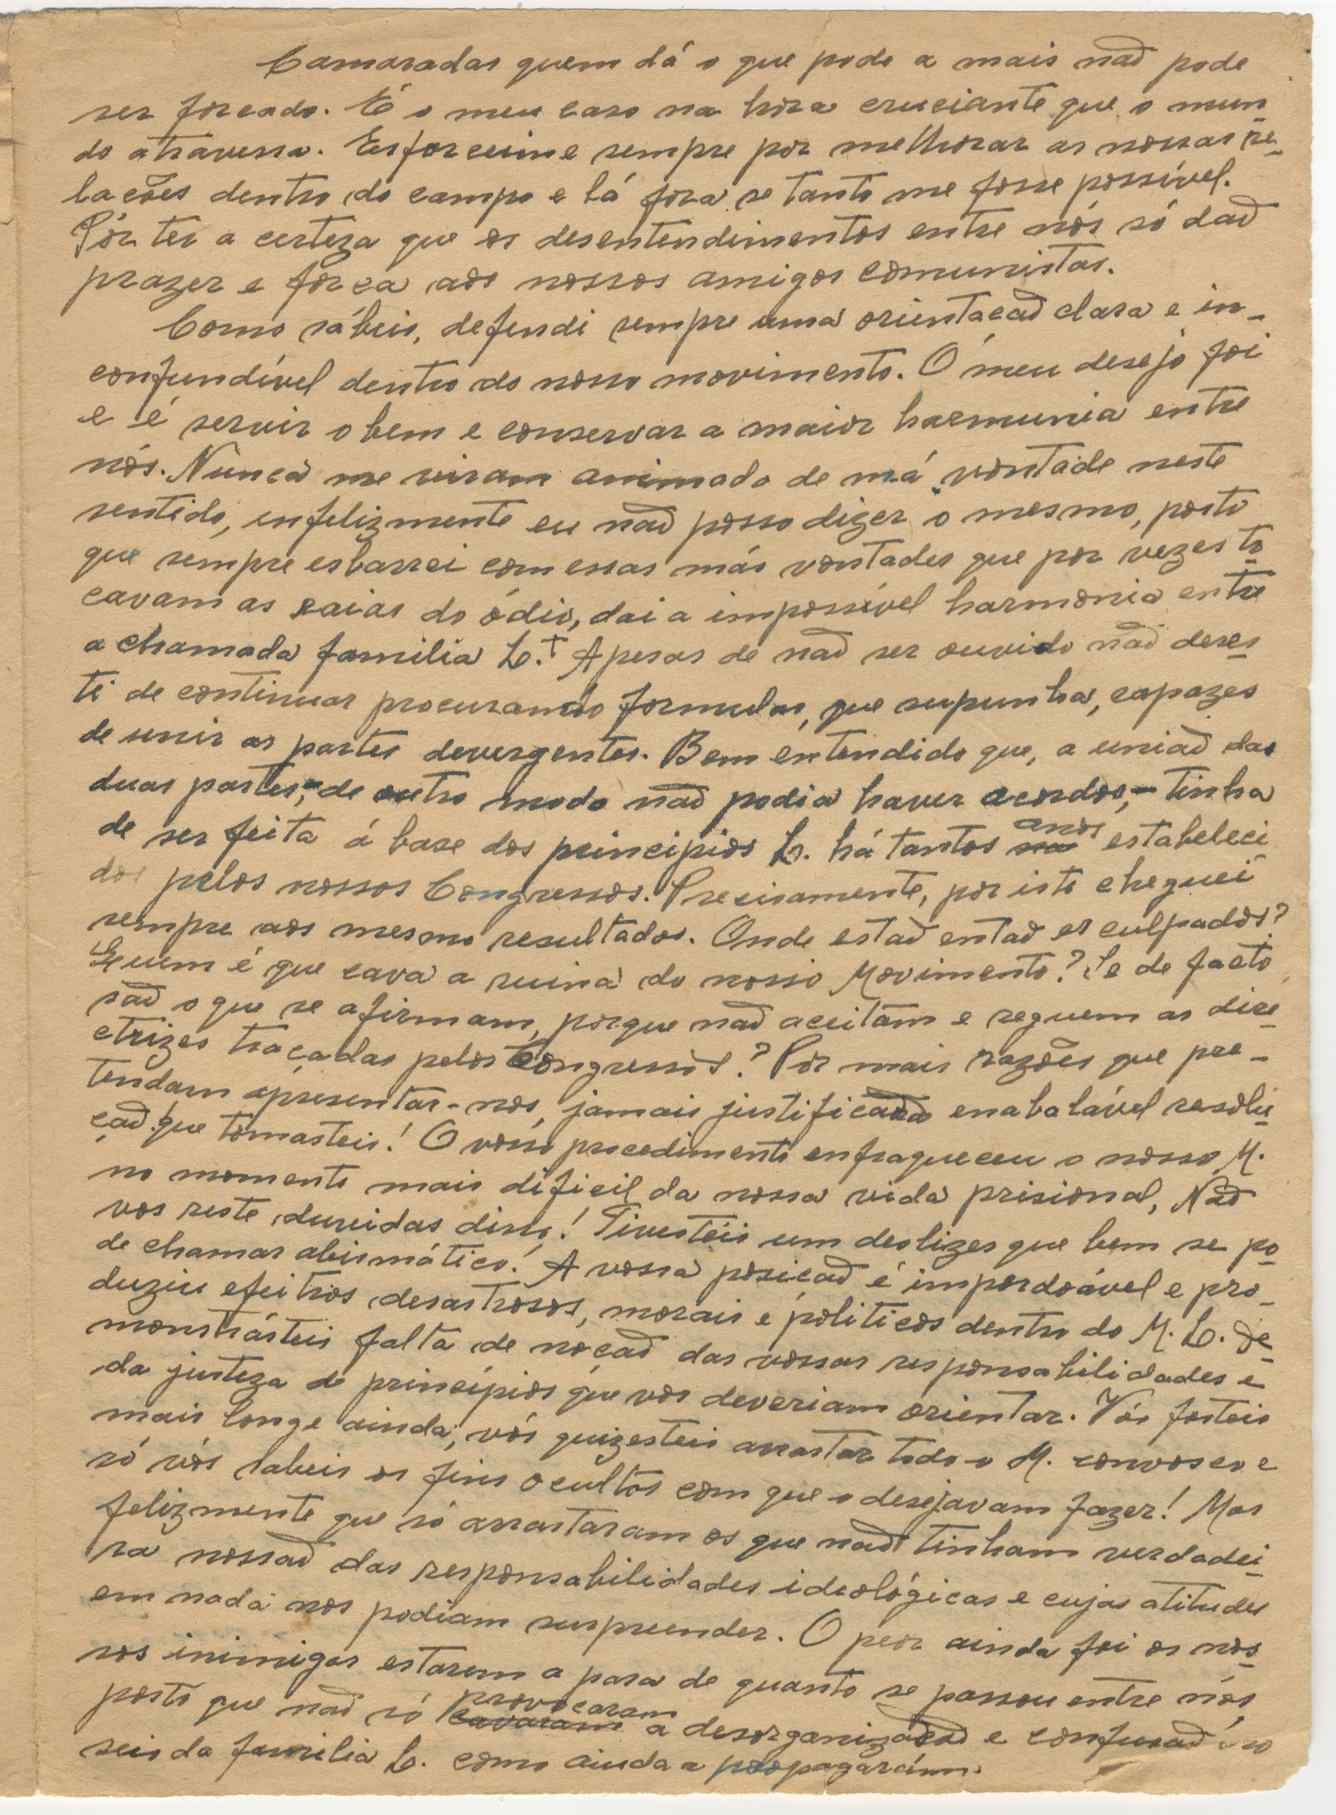 Camaradas quem dá o que pode a mais naõ pode
ser forcado. É o meu caso na hora cruciante que o mun-
do atravessa. Esforceime sempre por melhorar as nossas re-
lacões dentro do campo e lá fora se tanto me fosse possível.
Pór ter a certeza que os desentendimentos entre nós só daõ
prazer e forca aos nossos amigos comunistas.
Como sábeis, defendi sempre uma orientacaõ clara e in-
confundível dentro do nosso movimento. O meu desejo foi
e é servir o bem e conservar a maior harmunia entre
nós. Nunca me viram animado de má vontade neste
sentido, infelizmente eu naõ posso dizer o mesmo, posto
que sempre esbarrei com essas más vontades que por vezes to
cavam as raias do ódio, dai a impossível harmonia entre
a chamada familia L.ᵗ Apesar de naõ ser ouvido naõ deses-
ti de continuar procurando formulas, que supunha, capazes
de unir as partes devergentes. Bem entendido que, a uniaõ das
duas partes,- de outro modo naõ podia haver acordos,- tinha
de ser feita á base dos principios L. há tantos anos estabeleci
dos pelos nossos Congressos. Precisamente, por isto cheguei
sempre aos mesmo resultados. Onde estaõ entaõ os culpados?
Quem é que cava a ruina do nosso Movimento? Se de facto
saõ o que se afirmam, porque naõ aceitam e seguem as dire-
ctrizes tracadas pelos Congressos? Pór mais razões que pre-
tendam apresentar-nos, jamais justificada enabalável resolu-
çaõ que tomasteis! O vosso procedimento enfraqueceu o nosso M.
no momento mais dificil da nossa vida prisional, Naõ
vos reste duvidas disso! Tivesteis um deslizes que bem se po
de chamar abismático! A vossa posicaõ é impordoável e pro-
duziu efeitros desastrosos, morais e politicos dentro do M. L. De-
monstrásteis falta de nocaõ das vossas responsabilidades e
da justeza de princípios que vos deveriam orientar. Vós fosteis
mais longe ainda, vós quizesteis arrastar todo o M. convosco e
só vós sabeis os fins ocultos com que o desejavam fazer! Mas
felizmente que só arrastaram os que naõ tinham verdadei-
ra nossaõ das responsabilidades ideológicas e cujas atitudes
em nada nos podiam surpreender. O peor ainda foi os nos-
sos inimigos estarem a para de quanto se passou entre nós,
posto que naõ só provocaram a desorganizacaõ e confusaõ no
seio da familia L. como ainda a propagarám.